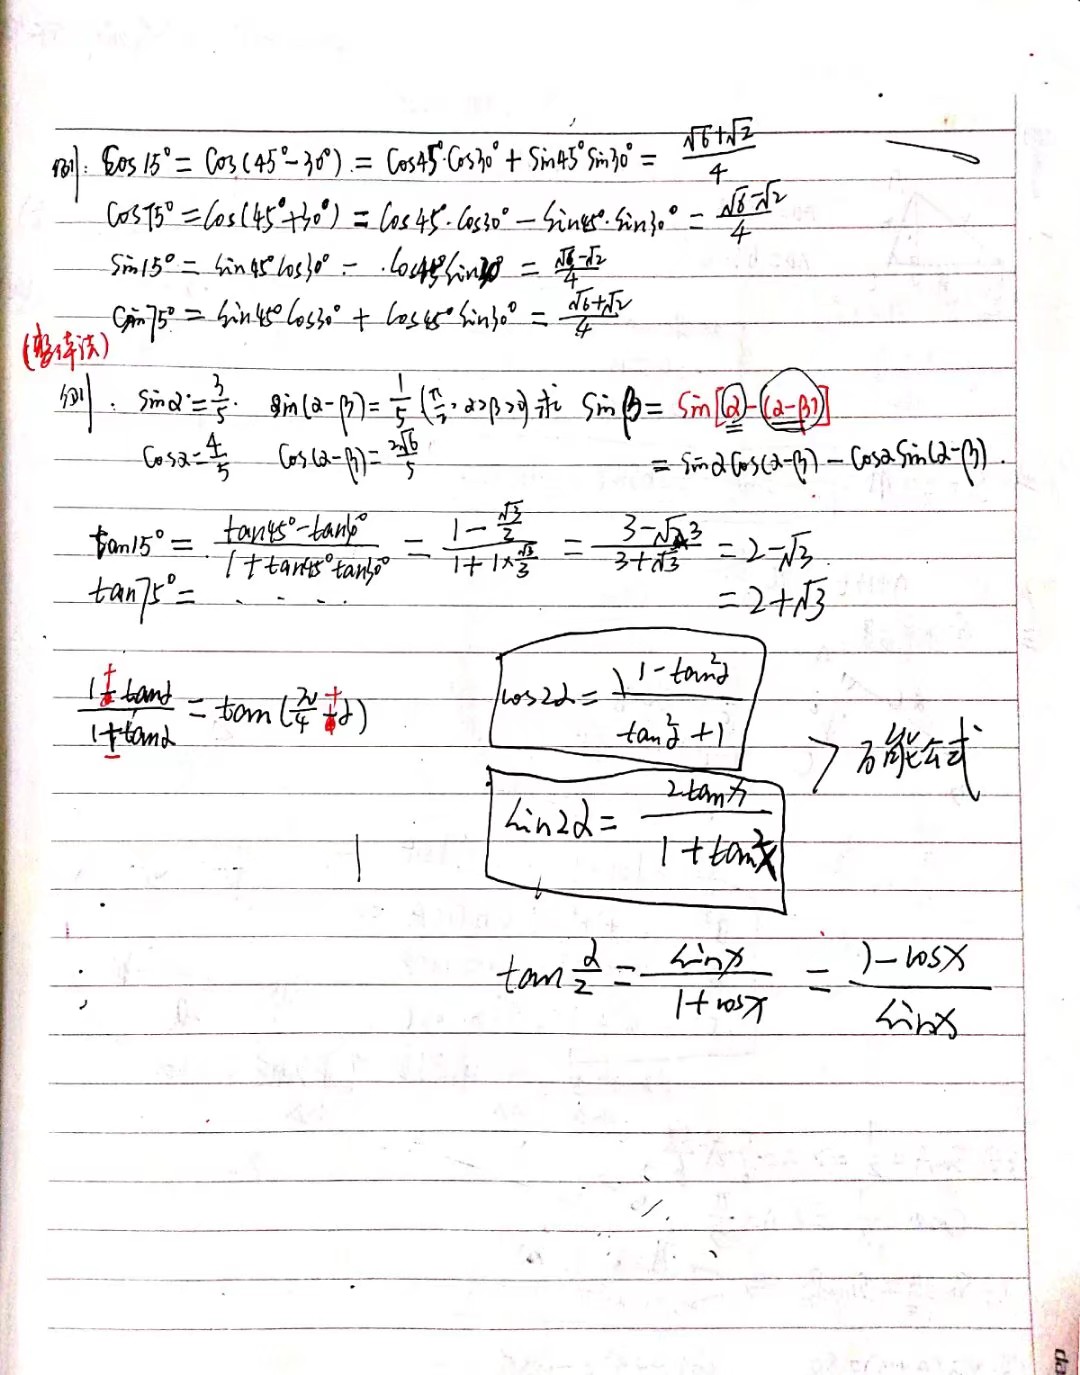 例: Cos15°=Cos(45°-30°)=Cos45°·Cos30°+Sin45°Sin30°=(√6+√2)/4
Cos75°=Cos(45°+30°)=Cos45°·Cos30°-Sin45°·Sin30°=(√6-√2)/4
Sin15°=Sin45°Cos30°-Cos45°Sin30°=(√6-√2)/4
Sin75°=Sin45°Cos30°+Cos45°Sin30°=(√6+√2)/4
(整体法)
例: Sinα=3/5. Sin(α-β)=1/5 (π/2>α>β>0) 求 Sinβ=Sin[α-(α-β)]
Cosα=4/5 Cos(α-β)=2√6/5 =SinαCos(α-β)-CosαSin(α-β).
tan15°=(tan45°-tan30°)/(1+tan45°tan30°)=(1-√3/2)/(1+1×√3/3)=(3-√3)/(3+√3)=2-√3
tan75°=..... =2+√3
(1±tanα)/(1∓tanα)=tan(π/4±α)
cos2α=(1-tan²α)/(tan²α+1)
>万能公式
Sin2α=2tanx/(1+tan²x)
tan α/2=sinx/(1+cosx)=(1-cosx)/sinx